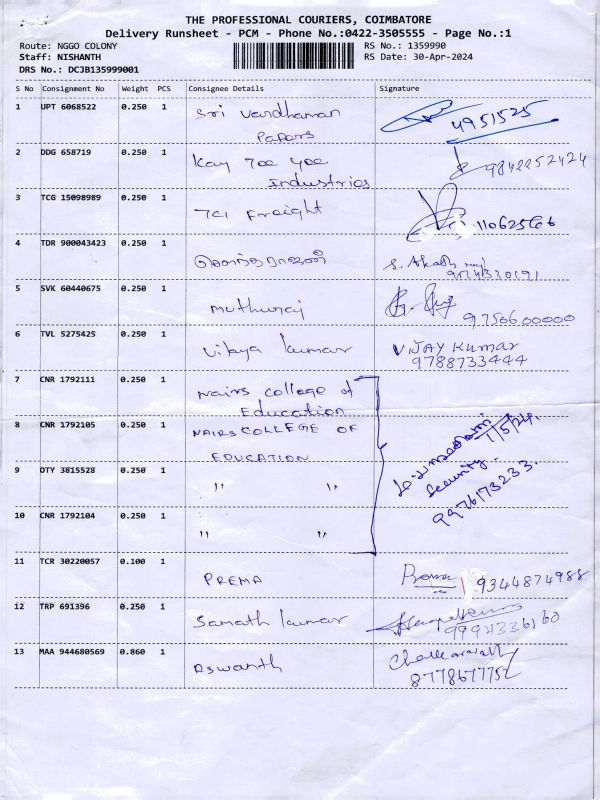 THE PROFESSIONAL COURIERS, COIMBATORE
Delivery Runsheet - PCM - Phone No.:0422-3505555 - Page No.:1
Route: NGGO COLONY RS No.: 1359990
Staff: NISHANTH RS Date: 30-Apr-2024
DRS No.: DCJB135999001
S No Consignment No Weight PCS Consignee Details Signature
1 UPT 6068522 0.250 1 Sri Vardhaman
Papers 4951525
2 DDG 658719 0.250 1 Kay Tee Yee
Industries 9842252424
3 TCG 15098989 0.250 1 TCI Freight
4 TDR 900043423 0.250 1 S. Akash
5 SVK 60440675 0.250 1 muthuraj 9750600000
6 TVL 5275425 0.250 1 Vijaya kumar VIJAY KUMAR
9788733444
7 CNR 1792111 0.250 1 Nairs College of
Education
8 CNR 1792105 0.250 1 NAIRS COLLEGE OF
EDUCATION 1/5/24.
Security.
9976173233.
9 DTY 3815528 0.250 1 " "
10 CNR 1792104 0.250 1 " "
11 TCR 30220057 0.100 1 PREMA Prema 9344874988
12 TRP 691396 0.250 1 Samath kumar
9994336160
13 MAA 944680569 0.860 1 Aswanth
8778677752